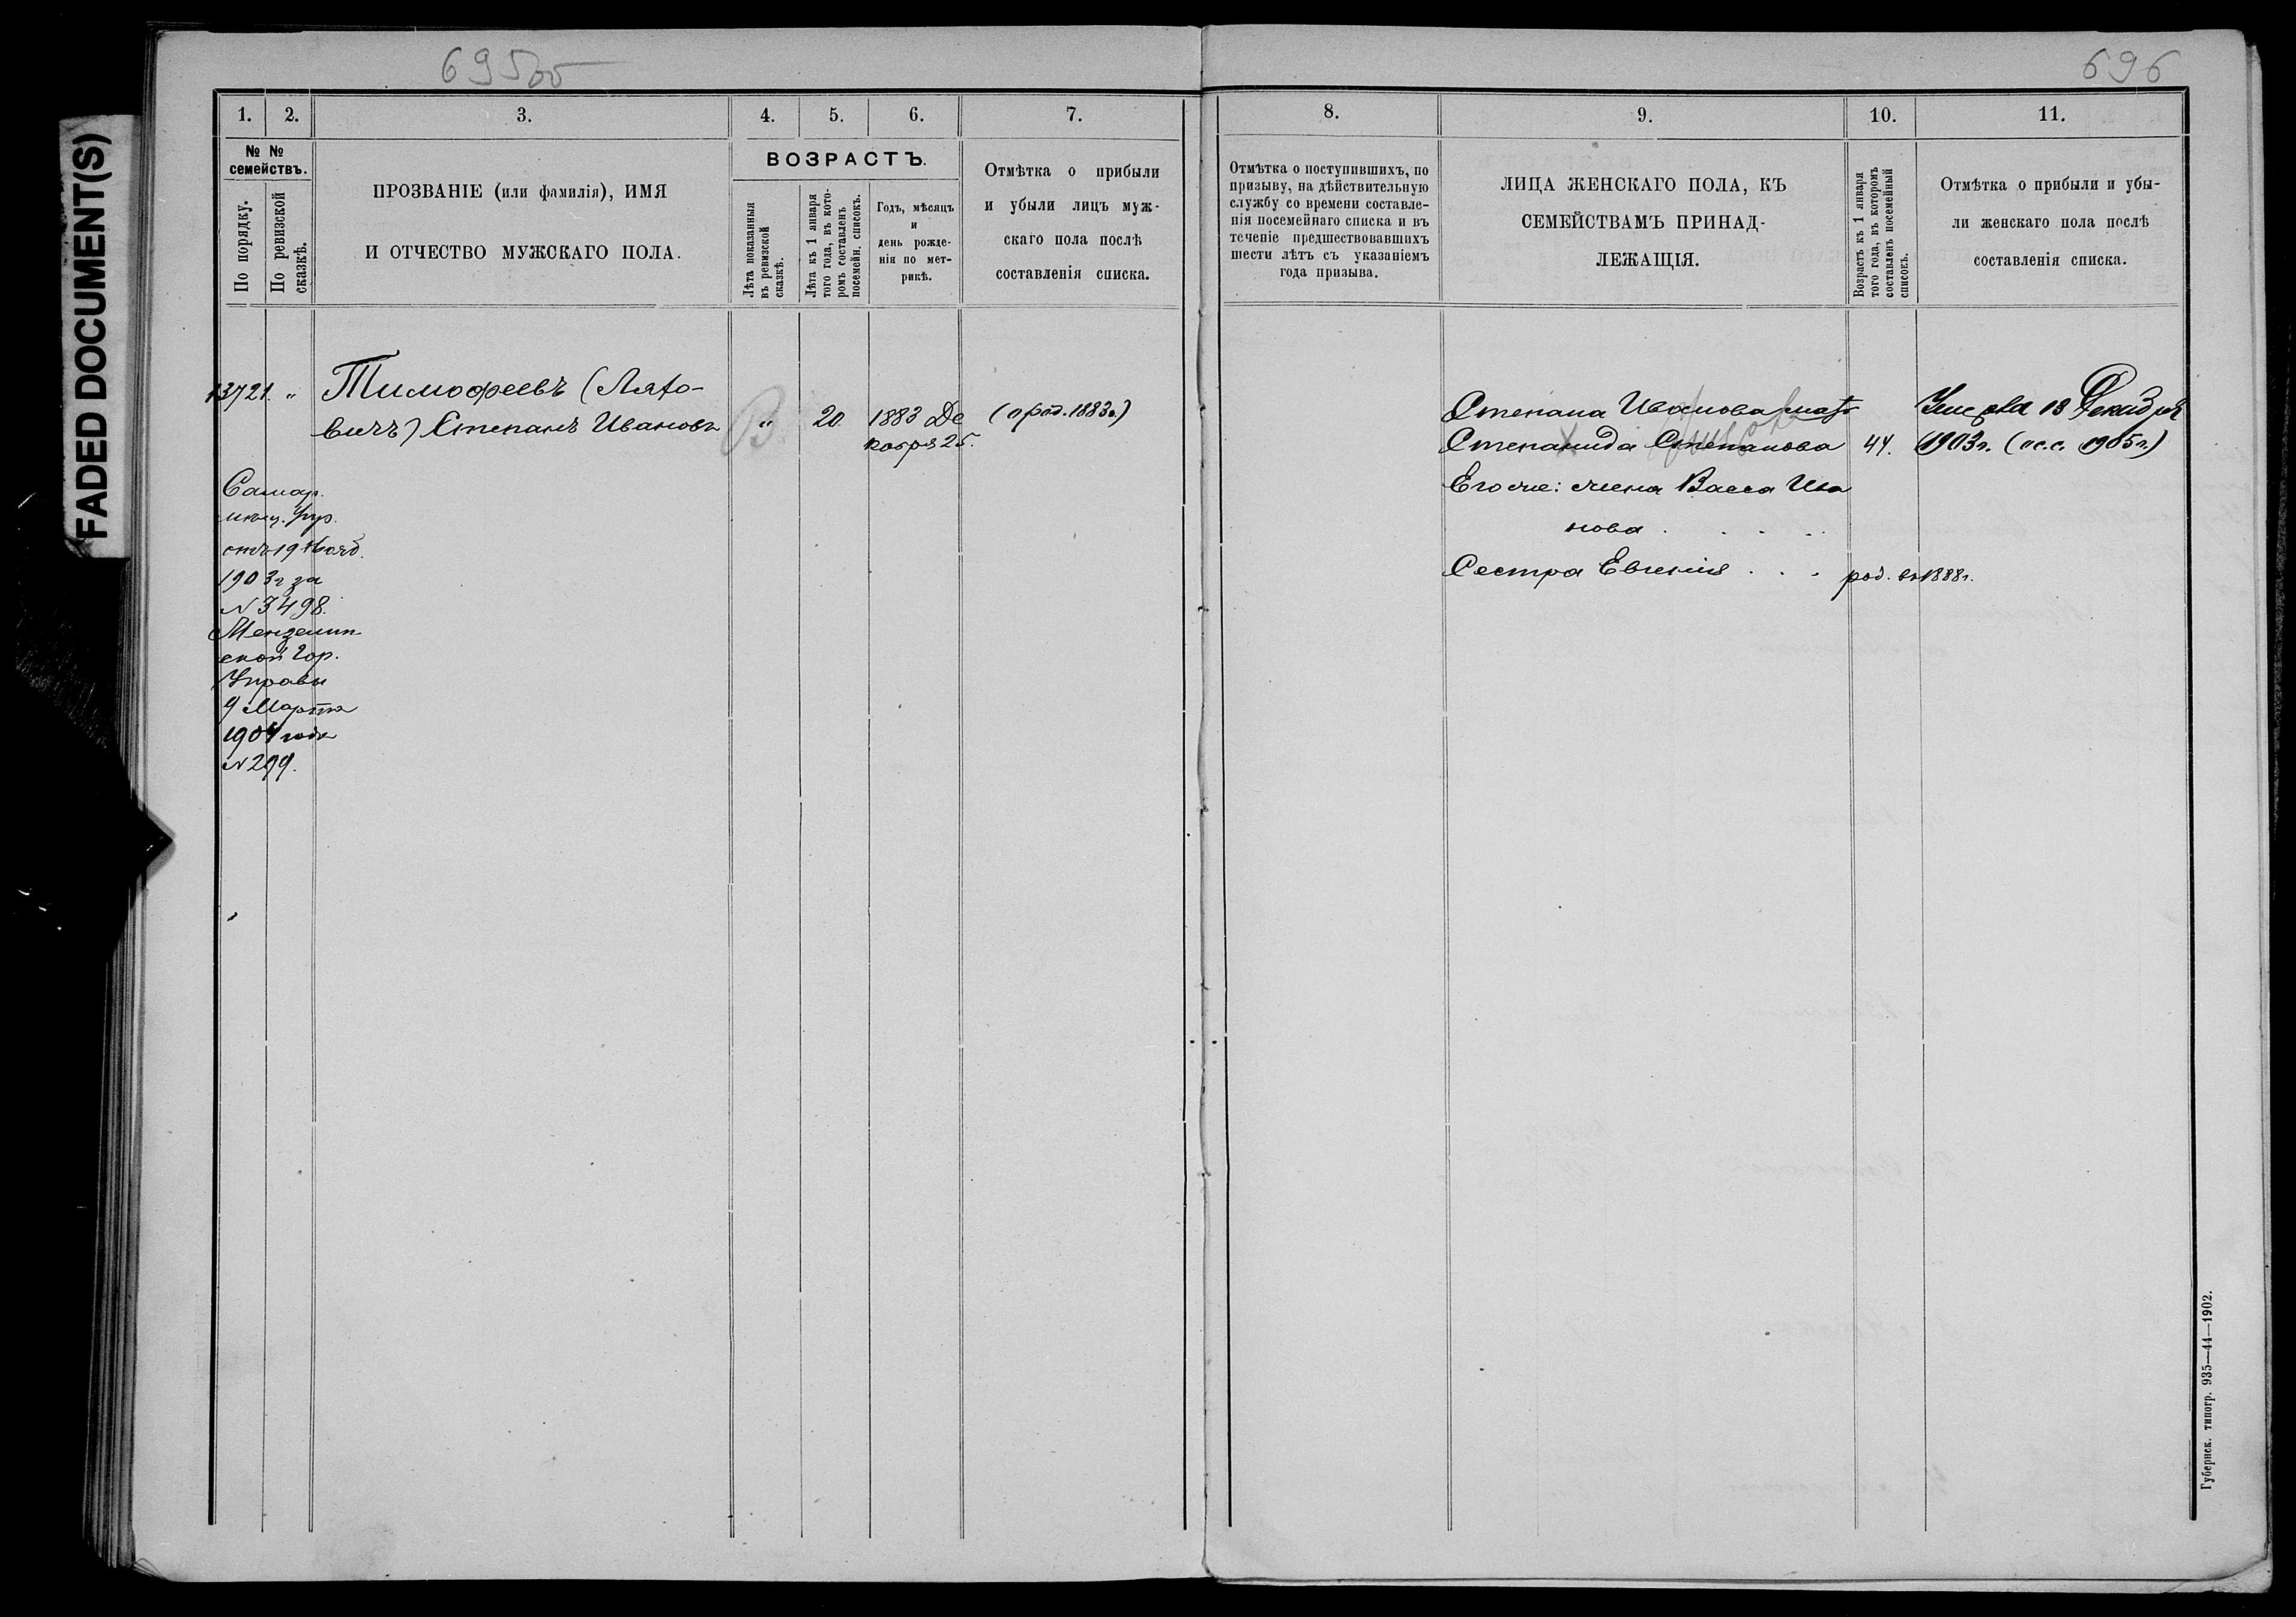 695об
696
FADED DOCUMENT(S)
1. 2. 3. 4. 5. 6. 7.
№ № семействъ.
По порядку.
По ревизской сказкѣ.
ПРОЗВАНІЕ (или фамилія), ИМЯ
И ОТЧЕСТВО МУЖСКАГО ПОЛА.
ВОЗРАСТЪ.
Лѣта показанныя
въ ревизской
сказкѣ.
Лѣта къ 1 января
того года, въ кото-
ромъ составленъ
посемейн. списокъ.
Годъ, мѣсяцъ
и
день рожде-
нія по мет-
рикѣ.
Отмѣтка о прибыли
и убыли лицъ муж-
скаго пола послѣ
составленія списка.
13721. „ Тимофеевъ (Лято-
вичъ) Степанъ Ивановъ В „ 20. 1883 Де
кабря 25. (п род. 1883г.)
Самар.
мѣщ. упр.
отъ 19 Нояб.
1903г за
№ 3498.
Мензелин
ской Гор.
Управы
9 Марта
1904 года
№ 299.
8. 9. 10. 11.
Отмѣтка о поступившихъ, по
призыву, на дѣйствительную
службу со времени составле-
нія посемейнаго списка и въ
теченіе предшествовавшихъ
шести лѣтъ съ указаніемъ
года призыва.
ЛИЦА ЖЕНСКАГО ПОЛА, КЪ
СЕМЕЙСТВАМЪ ПРИНАД-
ЛЕЖАЩІЯ.
Возрастъ къ 1 января
того года, въ которомъ
составленъ посемейный
списокъ.
Отмѣтка о прибыли и убы-
ли женскаго пола послѣ
составленія списка.
Степана Иванова мать Умерла 18 Декабря
Степанида Степанова 44. 1903г. (п.с.с. 1905г.)
Его же: жена Васса Ива
нова . . . .
Сестра Евгенія . . . род. въ 1888г.
Губернск. типогр. 935—44—1902.